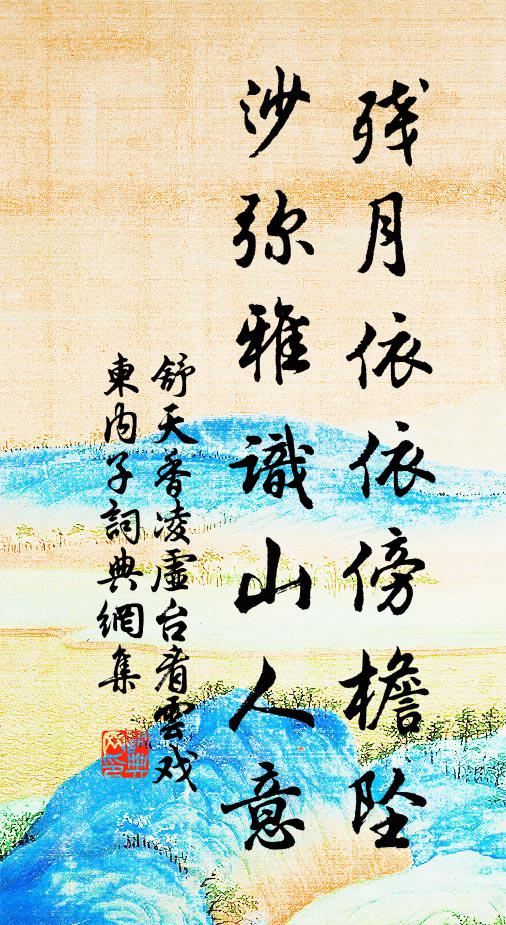 残月依依傍檐坠
沙弥雅識山人意
舒天香凌虚台看雲戏
東内子詞典網集